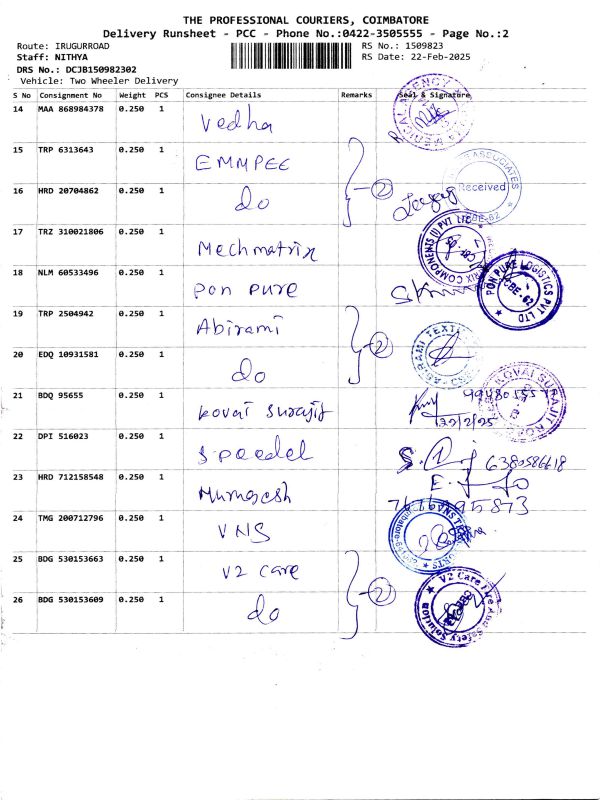 THE PROFESSIONAL COURIERS, COIMBATORE
Delivery Runsheet - PCC - Phone No.:0422-3505555 - Page No.:2
Route: IRUGURROAD
RS No.: 1509823
Staff: NITHYA
RS Date: 22-Feb-2025
DRS No.: DCJB150982302
Vehicle: Two Wheeler Delivery
S No Consignment No Weight PCS Consignee Details Remarks Seal & Signature
14 MAA 868984378 0.250 1 Vedha
15 TRP 6313643 0.250 1 EMMPEE
16 HRD 20704862 0.250 1 do 2 Received
17 TRZ 310021806 0.250 1 Mechmatrix
18 NLM 60533496 0.250 1 Pon pure PON PURE LOGISTICS PVT LTD CBE-62
19 TRP 2504942 0.250 1 Abirami
20 EDQ 10931581 0.250 1 do 2
21 BDQ 95655 0.250 1 Kovai Surajit 22/2/25
22 DPI 516023 0.250 1 Speedel 6380586618
23 HRD 712158548 0.250 1 Murugesh
24 TMG 200712796 0.250 1 VNS
25 BDG 530153663 0.250 1 V2 care
26 BDG 530153609 0.250 1 do 2 V2 Care Fire And Safety Solution